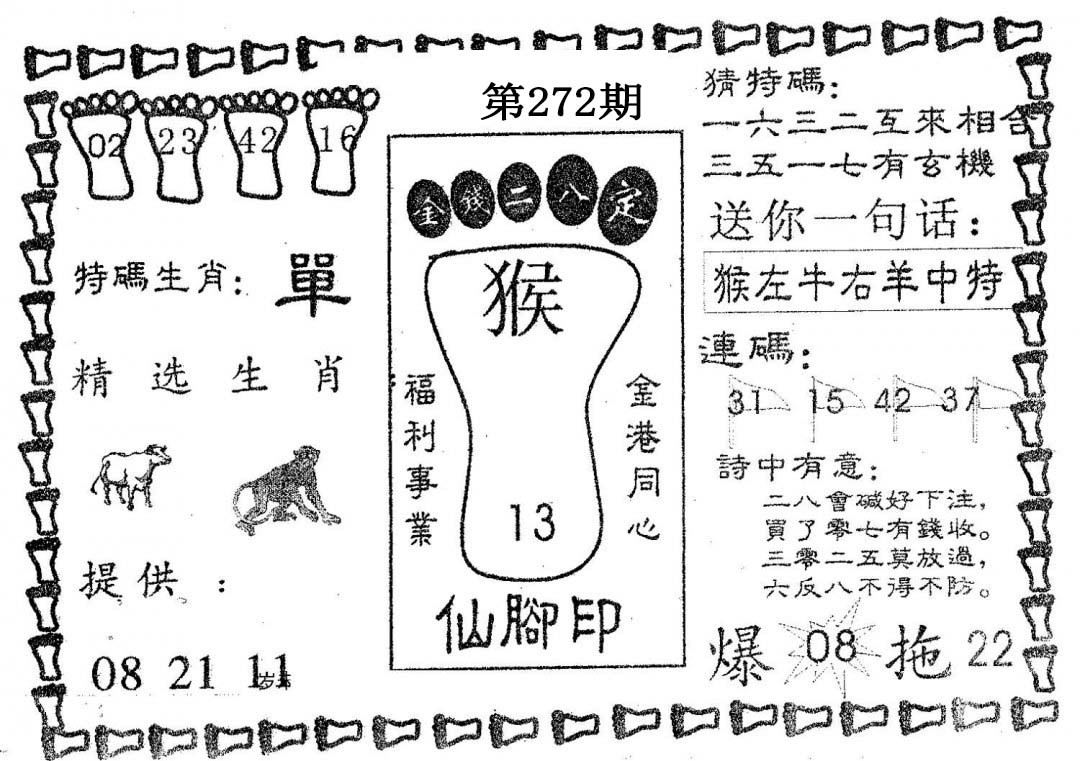 第272期
02 23 42 16
特碼生肖：單
精选生肖
提供：
08 21 11
金錢二八定
猴
福利事業
金港同心
13
仙腳印
猜特碼：
一六三二互來相合
三五一七有玄機
送你一句话：
猴左牛右羊中特
連碼：
31 15 42 37
詩中有意：
二八會碱好下注，
買了零七有錢收。
三零二五莫放過，
六反八不得不防。
爆 08 拖 22